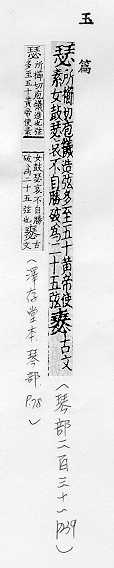 玉篇
瑟所櫛切庖犧造弦多至五十黃帝使
素女鼓瑟哀不自勝破為二十五弦𤨑古文
(琴部二百三十一 P239)
瑟所櫛切庖犧造也弦
多至五十黃帝使素
女鼓瑟哀不自勝
破為二十五弦也𤨑古文
(澤存堂本 琴部 P.78)